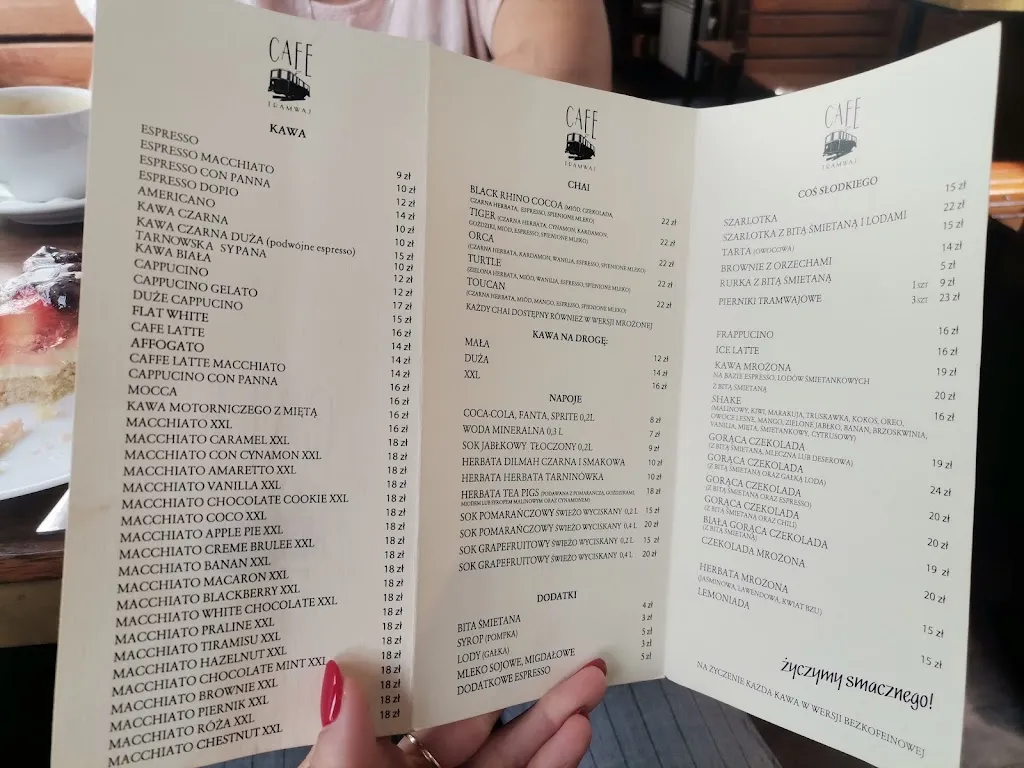 CAFE
TRAMWAJ
KAWA
ESPRESSO 9 zł
ESPRESSO MACCHIATO 10 zł
ESPRESSO CON PANNA 12 zł
ESPRESSO DOPIO 14 zł
AMERICANO 10 zł
KAWA CZARNA 10 zł
KAWA CZARNA DUŻA (podwójne espresso) 15 zł
TARNOWSKA SYPANA 10 zł
KAWA BIAŁA 12 zł
CAPPUCINO 12 zł
CAPPUCINO GELATO 17 zł
DUŻE CAPPUCINO 15 zł
FLAT WHITE 16 zł
CAFE LATTE 14 zł
AFFOGATO 14 zł
CAFFE LATTE MACCHIATO 14 zł
CAPPUCINO CON PANNA 16 zł
MOCCA 16 zł
KAWA MOTORNICZEGO Z MIĘTĄ 16 zł
MACCHIATO XXL 18 zł
MACCHIATO CARAMEL XXL 18 zł
MACCHIATO CON CYNAMON XXL 18 zł
MACCHIATO AMARETTO XXL 18 zł
MACCHIATO VANILLA XXL 18 zł
MACCHIATO CHOCOLATE COOKIE XXL 18 zł
MACCHIATO COCO XXL 18 zł
MACCHIATO APPLE PIE XXL 18 zł
MACCHIATO CREME BRULEE XXL 18 zł
MACCHIATO BANAN XXL 18 zł
MACCHIATO MACARON XXL 18 zł
MACCHIATO BLACKBERRY XXL 18 zł
MACCHIATO WHITE CHOCOLATE XXL 18 zł
MACCHIATO PRALINE XXL 18 zł
MACCHIATO TIRAMISU XXL 18 zł
MACCHIATO HAZELNUT XXL 18 zł
MACCHIATO CHOCOLATE MINT XXL 18 zł
MACCHIATO BROWNIE XXL
MACCHIATO PIERNIK XXL
MACCHIATO RÓŻA XXL
MACCHIATO CHESTNUT XXL
CAFE
TRAMWAJ
CHAI
BLACK RHINO COCOA (MIÓD, CZEKOLADA,
CZARNA HERBATA, ESPRESSO, SPIENIONE MLEKO) 22 zł
TIGER (CZARNA HERBATA, CYNAMON, KARDAMON,
GOŹDZIKI, MIÓD, ESPRESSO, SPIENIONE MLEKO) 22 zł
ORCA
(CZARNA HERBATA, KARDAMON, WANILIA, ESPRESSO, SPIENIONE MLEKO) 22 zł
TURTLE
(ZIELONA HERBATA, MIÓD, WANILIA, ESPRESSO, SPIENIONE MLEKO) 22 zł
TOUCAN
(CZARNA HERBATA, MIÓD, MANGO, ESPRESSO, SPIENIONE MLEKO) 22 zł
KAŻDY CHAI DOSTĘPNY RÓWNIEŻ W WERSJI MROŻONEJ
KAWA NA DROGĘ:
MAŁA 12 zł
DUŻA 14 zł
XXL 16 zł
NAPOJE
COCA-COLA, FANTA, SPRITE 0,2L 8 zł
WODA MINERALNA 0,3 L 7 zł
SOK JABŁKOWY TŁOCZONY 0,2L 9 zł
HERBATA DILMAH CZARNA I SMAKOWA 10 zł
HERBATA HERBATA TARNINÓWKA 10 zł
HERBATA TEA PIGS (PODAWANA Z POMARAŃCZĄ, GOŹDZIKAMI, 18 zł
MIODEM LUB SYROPEM MALINOWYM ORAZ CYNAMONEM)
SOK POMARAŃCZOWY ŚWIEŻO WYCISKANY 0,2 L 15 zł
SOK POMARAŃCZOWY ŚWIEŻO WYCISKANY 0,4 L 20 zł
SOK GRAPEFRUITOWY ŚWIEŻO WYCISKANY 0,2 L 15 zł
SOK GRAPEFRUITOWY ŚWIEŻO WYCISKANY 0,4 L 20 zł
DODATKI
BITA ŚMIETANA 4 zł
SYROP (POMPKA) 3 zł
LODY (GAŁKA) 5 zł
MLEKO SOJOWE, MIGDAŁOWE 3 zł
DODATKOWE ESPRESSO 5 zł
CAFE
TRAMWAJ
COŚ SŁODKIEGO
SZARLOTKA 15 zł
SZARLOTKA Z BITĄ ŚMIETANĄ I LODAMI 22 zł
TARTA (OWOCOWA) 15 zł
BROWNIE Z ORZECHAMI 14 zł
RURKA Z BITĄ ŚMIETANĄ 5 zł
PIERNIKI TRAMWAJOWE 1szt 9 zł
3szt 23 zł
FRAPPUCINO
ICE LATTE
KAWA MROŻONA
(NA BAZIE ESPRESSO, LODÓW ŚMIETANKOWYCH
Z BITĄ ŚMIETANĄ)
SHAKE
(MALINOWY, KIWI, MARAKUJA, TRUSKAWKA, KOKOS, OREO,
OWOCE LEŚNE, MANGO, ZIELONE JABŁKO, BANAN, BRZOSKWINIA,
VANILIA, MIĘTA, ŚMIETANKOWY, CYTRUSOWY)
GORĄCA CZEKOLADA
(Z BITĄ ŚMIETANĄ, MLECZNA LUB DESEROWA)
GORĄCA CZEKOLADA
(Z BITĄ ŚMIETANĄ ORAZ GAŁKĄ LODA)
GORĄCA CZEKOLADA
(Z BITĄ ŚMIETANĄ ORAZ ESPRESSO)
GORĄCA CZEKOLADA
(Z BITĄ ŚMIETANĄ ORAZ CHILI)
BIAŁA GORĄCA CZEKOLADA
(Z BITĄ ŚMIETANĄ)
CZEKOLADA MROŻONA
HERBATA MROŻONA
(JAŚMINOWA, LAWENDOWA, KWIAT BZU)
LEMONIADA
16 zł
16 zł
19 zł
20 zł
16 zł
19 zł
24 zł
20 zł
20 zł
19 zł
20 zł
15 zł
15 zł
życzymy smacznego!
NA ŻYCZENIE KAŻDA KAWA W WERSJI BEZKOFEINOWEJ